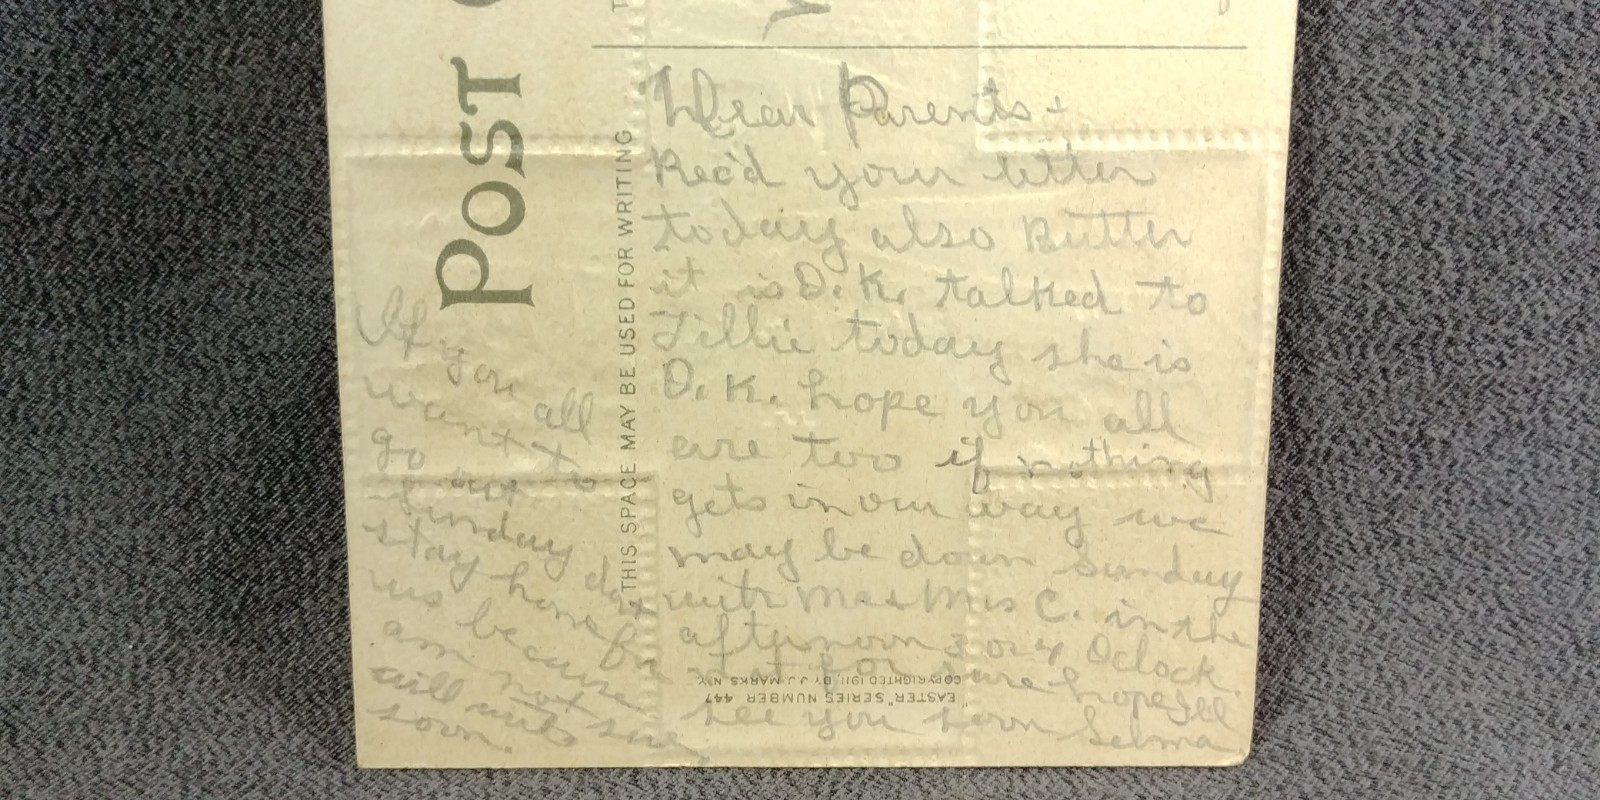 POST
THIS SPACE MAY BE USED FOR WRITING
Dear Parents +
Rec'd your letter
today also Butter
it is O.K. talked to
Tillie today she is
O.K. hope you all
are too if nothing
gets in our way we
may be down Sunday
with Mr & Mrs C. in the
afternoon 3 or 4 Oclock
not for sure hope I'll
see you soon Selma
If you all
want to
go out
Sunday
stay home for
us because
am not sure
will write
soon.
"EASTER" SERIES NUMBER 447
COPYRIGHTED 1911, BY J.J. MARKS N.Y.